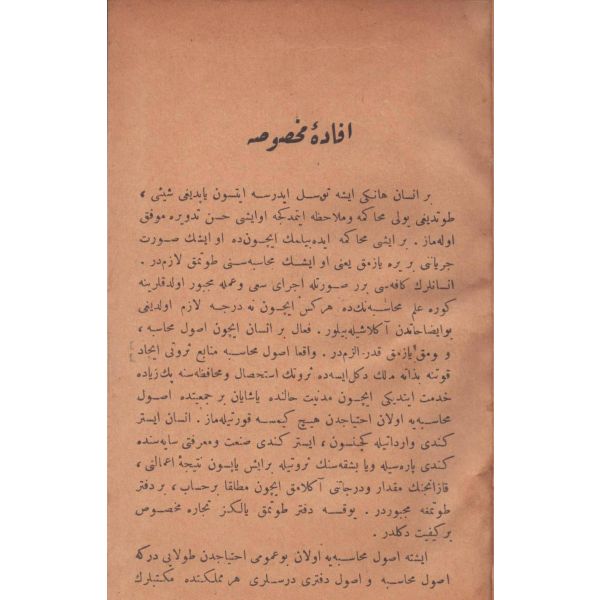 افادهٔ مخصوصه
بر انسان هانکی ایشه توسل ایدرسه ایتسون یاپدیغی شیئی ،
طوتدیغی یولی محاکمه وملاحظه ایتمدکجه اوایشی حسن تدویره موفق
اوله‌ماز . بر ایشی محاکمه ایده‌بیلمك ایچون‌ده او ایشك صورت
جریاننی بر یره یازمق یعنی او ایشك محاسبه‌سنی طوتمق لازم‌در .
انسانلرك کافه‌سی برر صورتله اجرای سعی وعمله مجبور اولدقلرینه
کوره علم محاسبه‌نك‌ده هرکس ایچون نه درجه لازم اولدیغی
بوایضاحاتدن آکلاشیله‌بیلور . فعال بر انسان ایچون اصول محاسبه ،
یازمق قدر الزم‌در . واقعا اصول محاسبه منابع ثروتی ایجاد
قوتنه بذاته مالك دکل‌ایسه‌ده ثروتك استحصال ومحافظه‌سنه پك‌زیاده
خدمت ایتدیکی ایچون مدنیت حالنده یاشایان بر جمعیتده اصول
محاسبه‌یه اولان احتیاجدن هیچ کیمسه قورتیله‌ماز . انسان ایستر
کندی وارداتیله کچنسون ، ایستر کندی صنعت ومعرفتی سایه‌سنده
کندی پاره‌سیله ویا بشقه‌سنك ثروتیله برایش یاپسون نتیجهٔ اعمالنی ،
قازانجنك مقدار ودرجاتی آکلامق ایچون مطلقا برحساب ، بر دفتر
طوتمغه مجبوردر . یوقسه دفتر طوتمق یالکز تجاره مخصوص
برکیفیت دکلدر .
ایشته اصول محاسبه‌یه اولان بوعمومی احتیاجدن طولایی درکه
اصول محاسبه و اصول دفتری درسلری هر مملکتده مکتبلرك